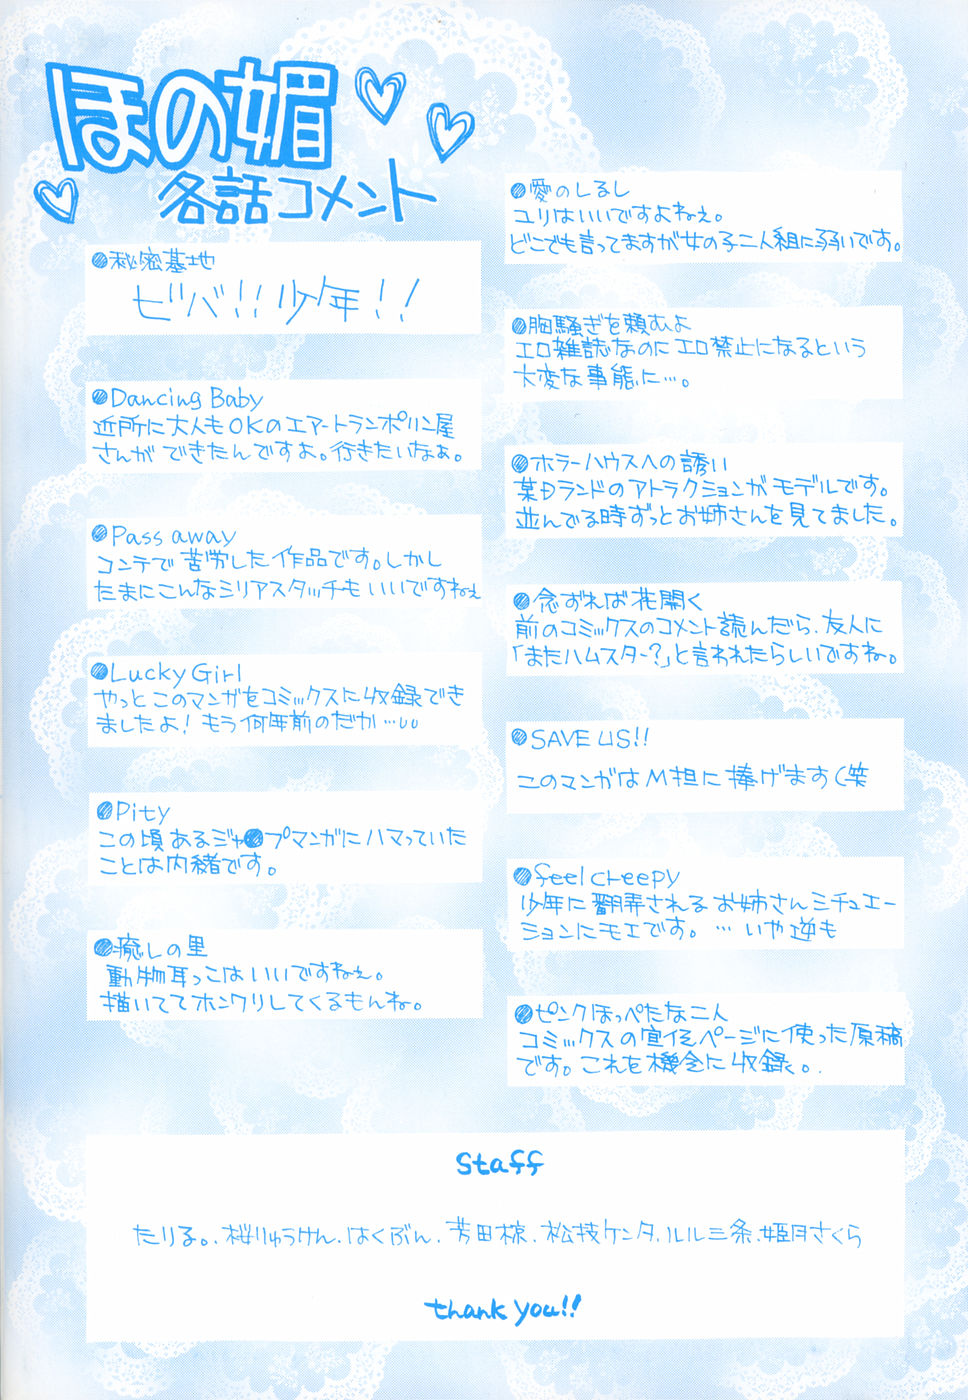 ほの媚
各話コメント
●秘密基地
ビバ!!少年!!
●Dancing Baby
近所に大人もOKのエアートランポリン屋
さんができたんですよ。行きたいなぁ。
●Pass away
コンテで苦労した作品です。しかし
たまにこんなシリアスタッチもいいですねぇ
●Lucky Girl
やっとこのマンガをコミックスに収録でき
ましたよ!もう何年前のだか…
●Pity
この頃あるジャ●プマンガにハマっていた
ことは内緒です。
●癒しの里
動物耳っこはいいですねぇ。
描いててホンワリしてくるもんね。
●愛のしるし
ユリはいいですよねぇ。
どこでも言ってますが女の子二人組に弱いです。
●胸騒ぎを頼むよ
エロ雑誌なのにエロ禁止になるという
大変な事態に…。
●ホラーハウスへの誘い
某Dランドのアトラクションがモデルです。
並んでる時ずっとお姉さんを見てました。
●念ずれば花開く
前のコミックスのコメント読んだら、友人に
「またハムスター?」と言われたらしいですね。
●SAVE US!!
このマンガはM担に捧げます(笑
●feel creepy
少年に翻弄されるお姉さんシチュエー
ションにモエです。…いや逆も
●ピンクほっぺたな二人
コミックスの宣伝ページに使った原稿
です。これを機会に収録。
Staff
たりる。、桜りゅうけん、はくぶん、芳田椋、松技ケンタ、ルル三条、姫月さくら
thank you!!